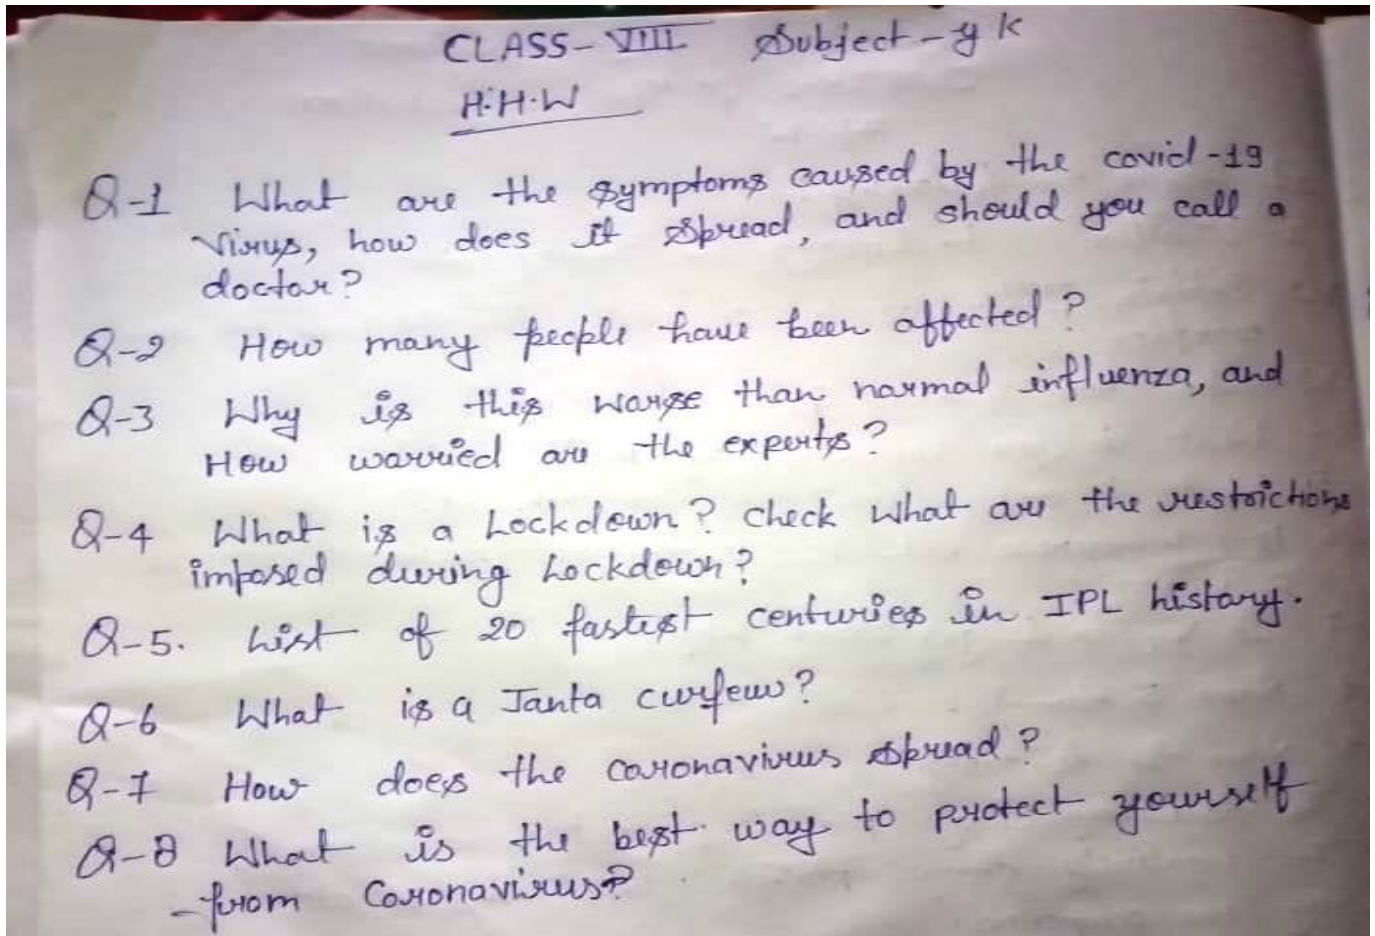 CLASS-VIII Subject-g k
H.H.W
Q-1 What are the symptoms caused by the covid-19
virus, how does it spread, and should you call a
doctor?
Q-2 How many people have been affected?
Q-3 Why is this worse than normal influenza, and
How worried are the experts?
Q-4 What is a Lockdown? check what are the restrictions
imposed during Lockdown?
Q-5. List of 20 fastest centuries in IPL history.
Q-6 What is a Janta curfew?
Q-7 How does the coronavirus spread?
Q-8 What is the best way to protect yourself
from Coronavirus?